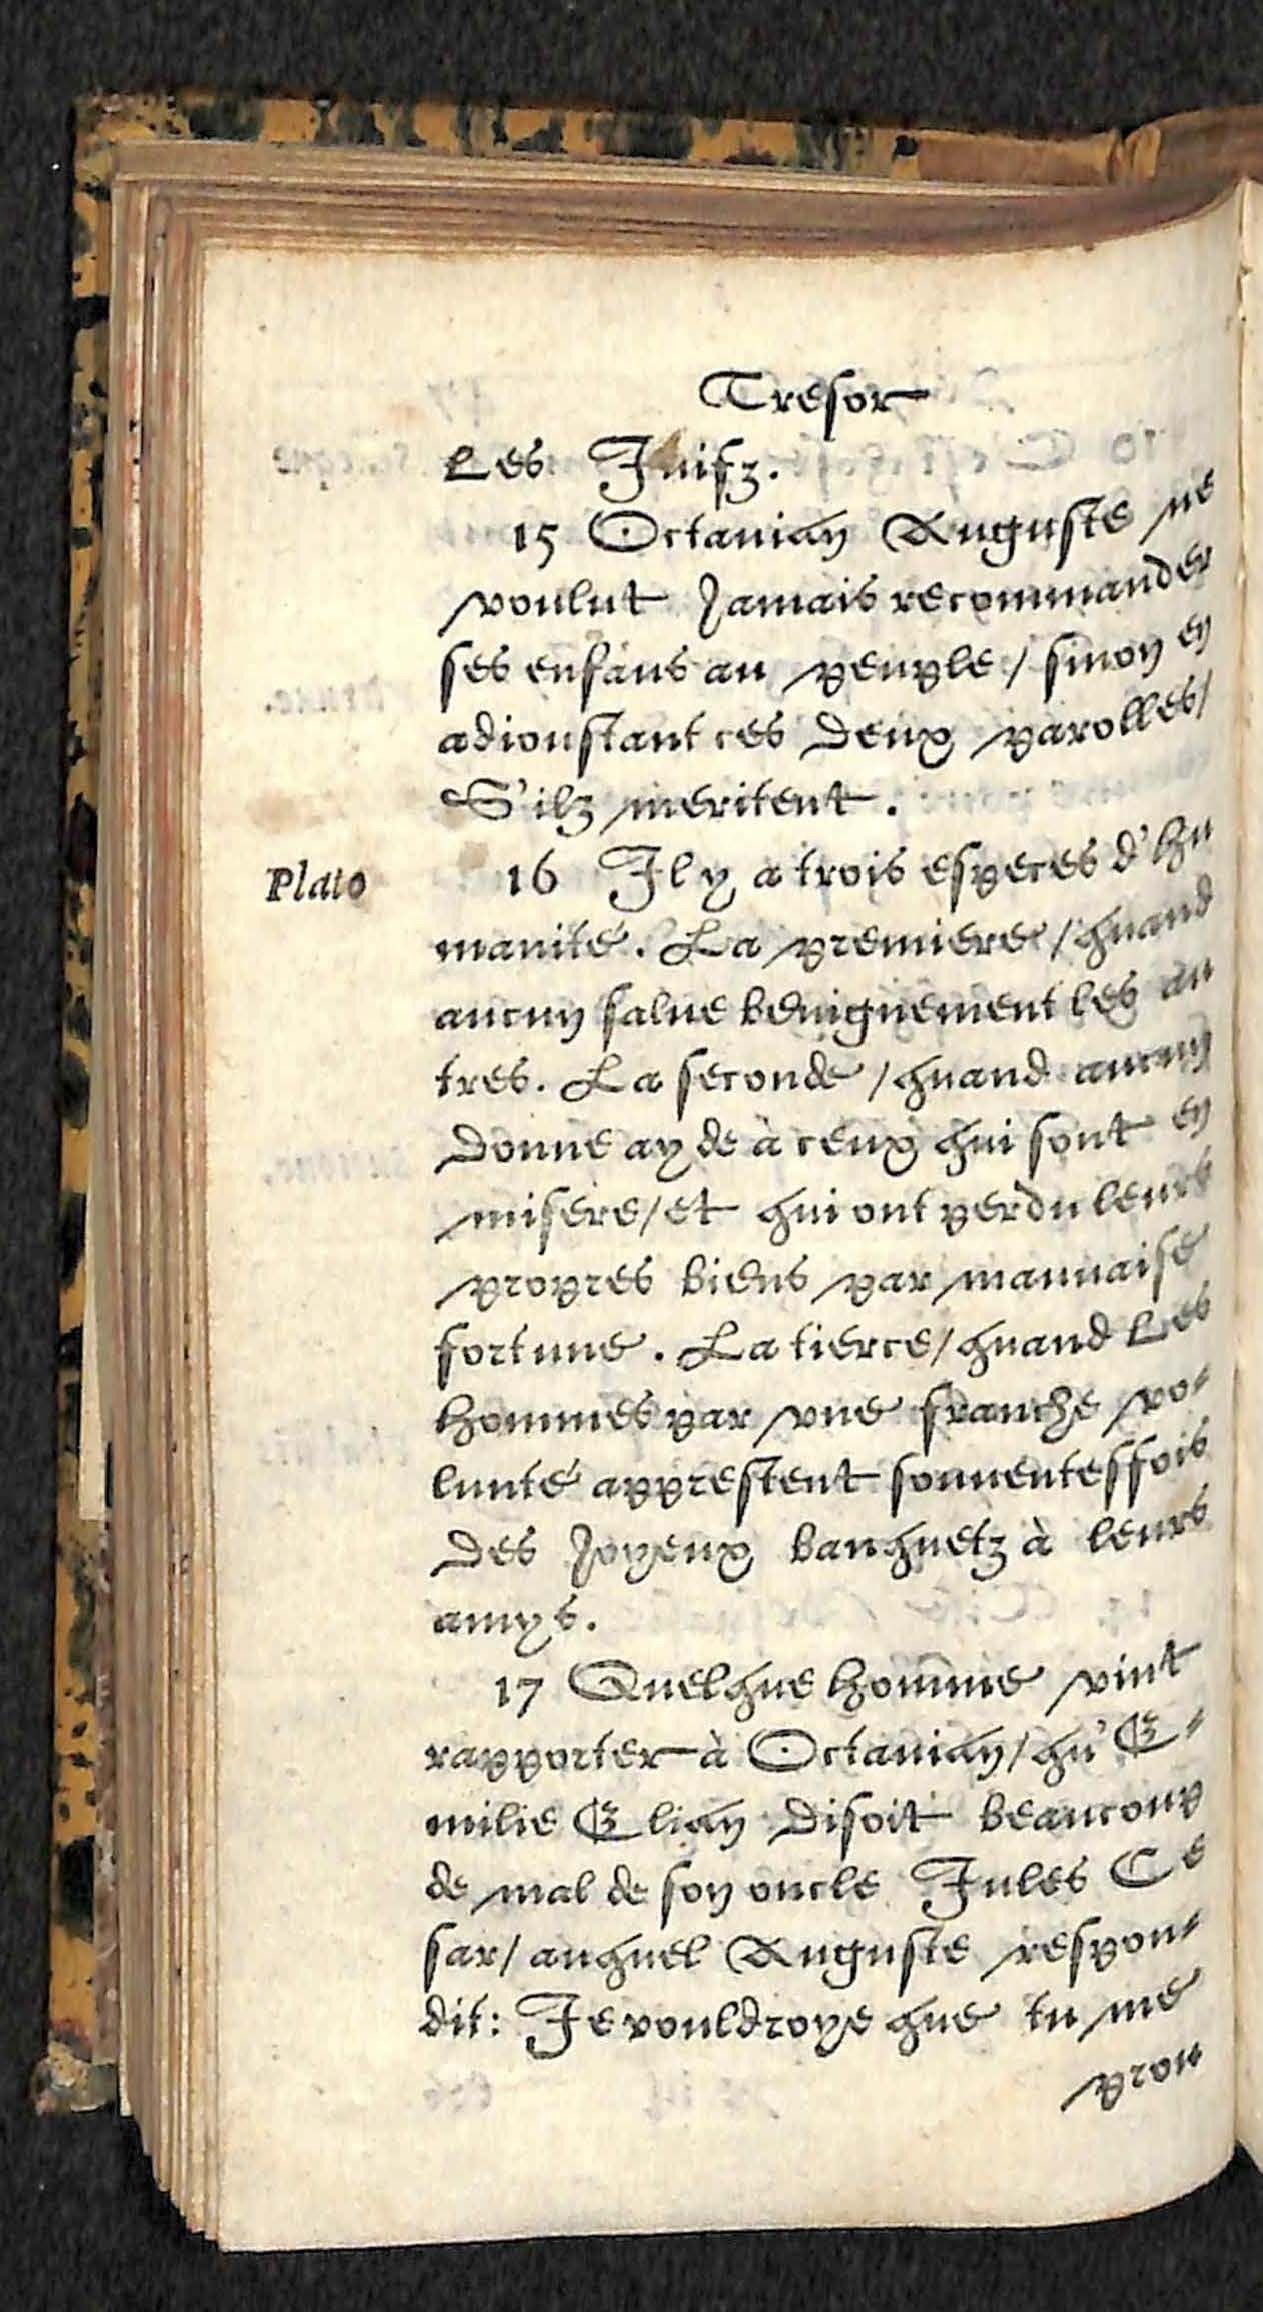 Tresor
Les Juifz.
15 Octauian Auguste ne
voulut jamais recommander
ses enfans au peuple / sinon en
adioustant ces deux parolles /
S'ilz meritent.
Plato
16 Il y a trois especes d'hu
manité. La premiere / quand
aucun salue benignement les au
tres. La seconde / quand aucun
donne ayde à ceux qui sont en
misere / et qui ont perdu leurs
propres biens par mauuaise
fortune. La tierce / quand Les
hommes par vne franche vo-
lunté apprestent souuenteffois
des joyeux banquetz à leurs
amys.
17 Quelque homme vint
rapporter à Octauian / qu'E-
milie Elian disoit beaucoup
de mal de son oncle Jules Ce
sar / auquel Auguste respon-
dit: Je vouldroye que tu me
prou